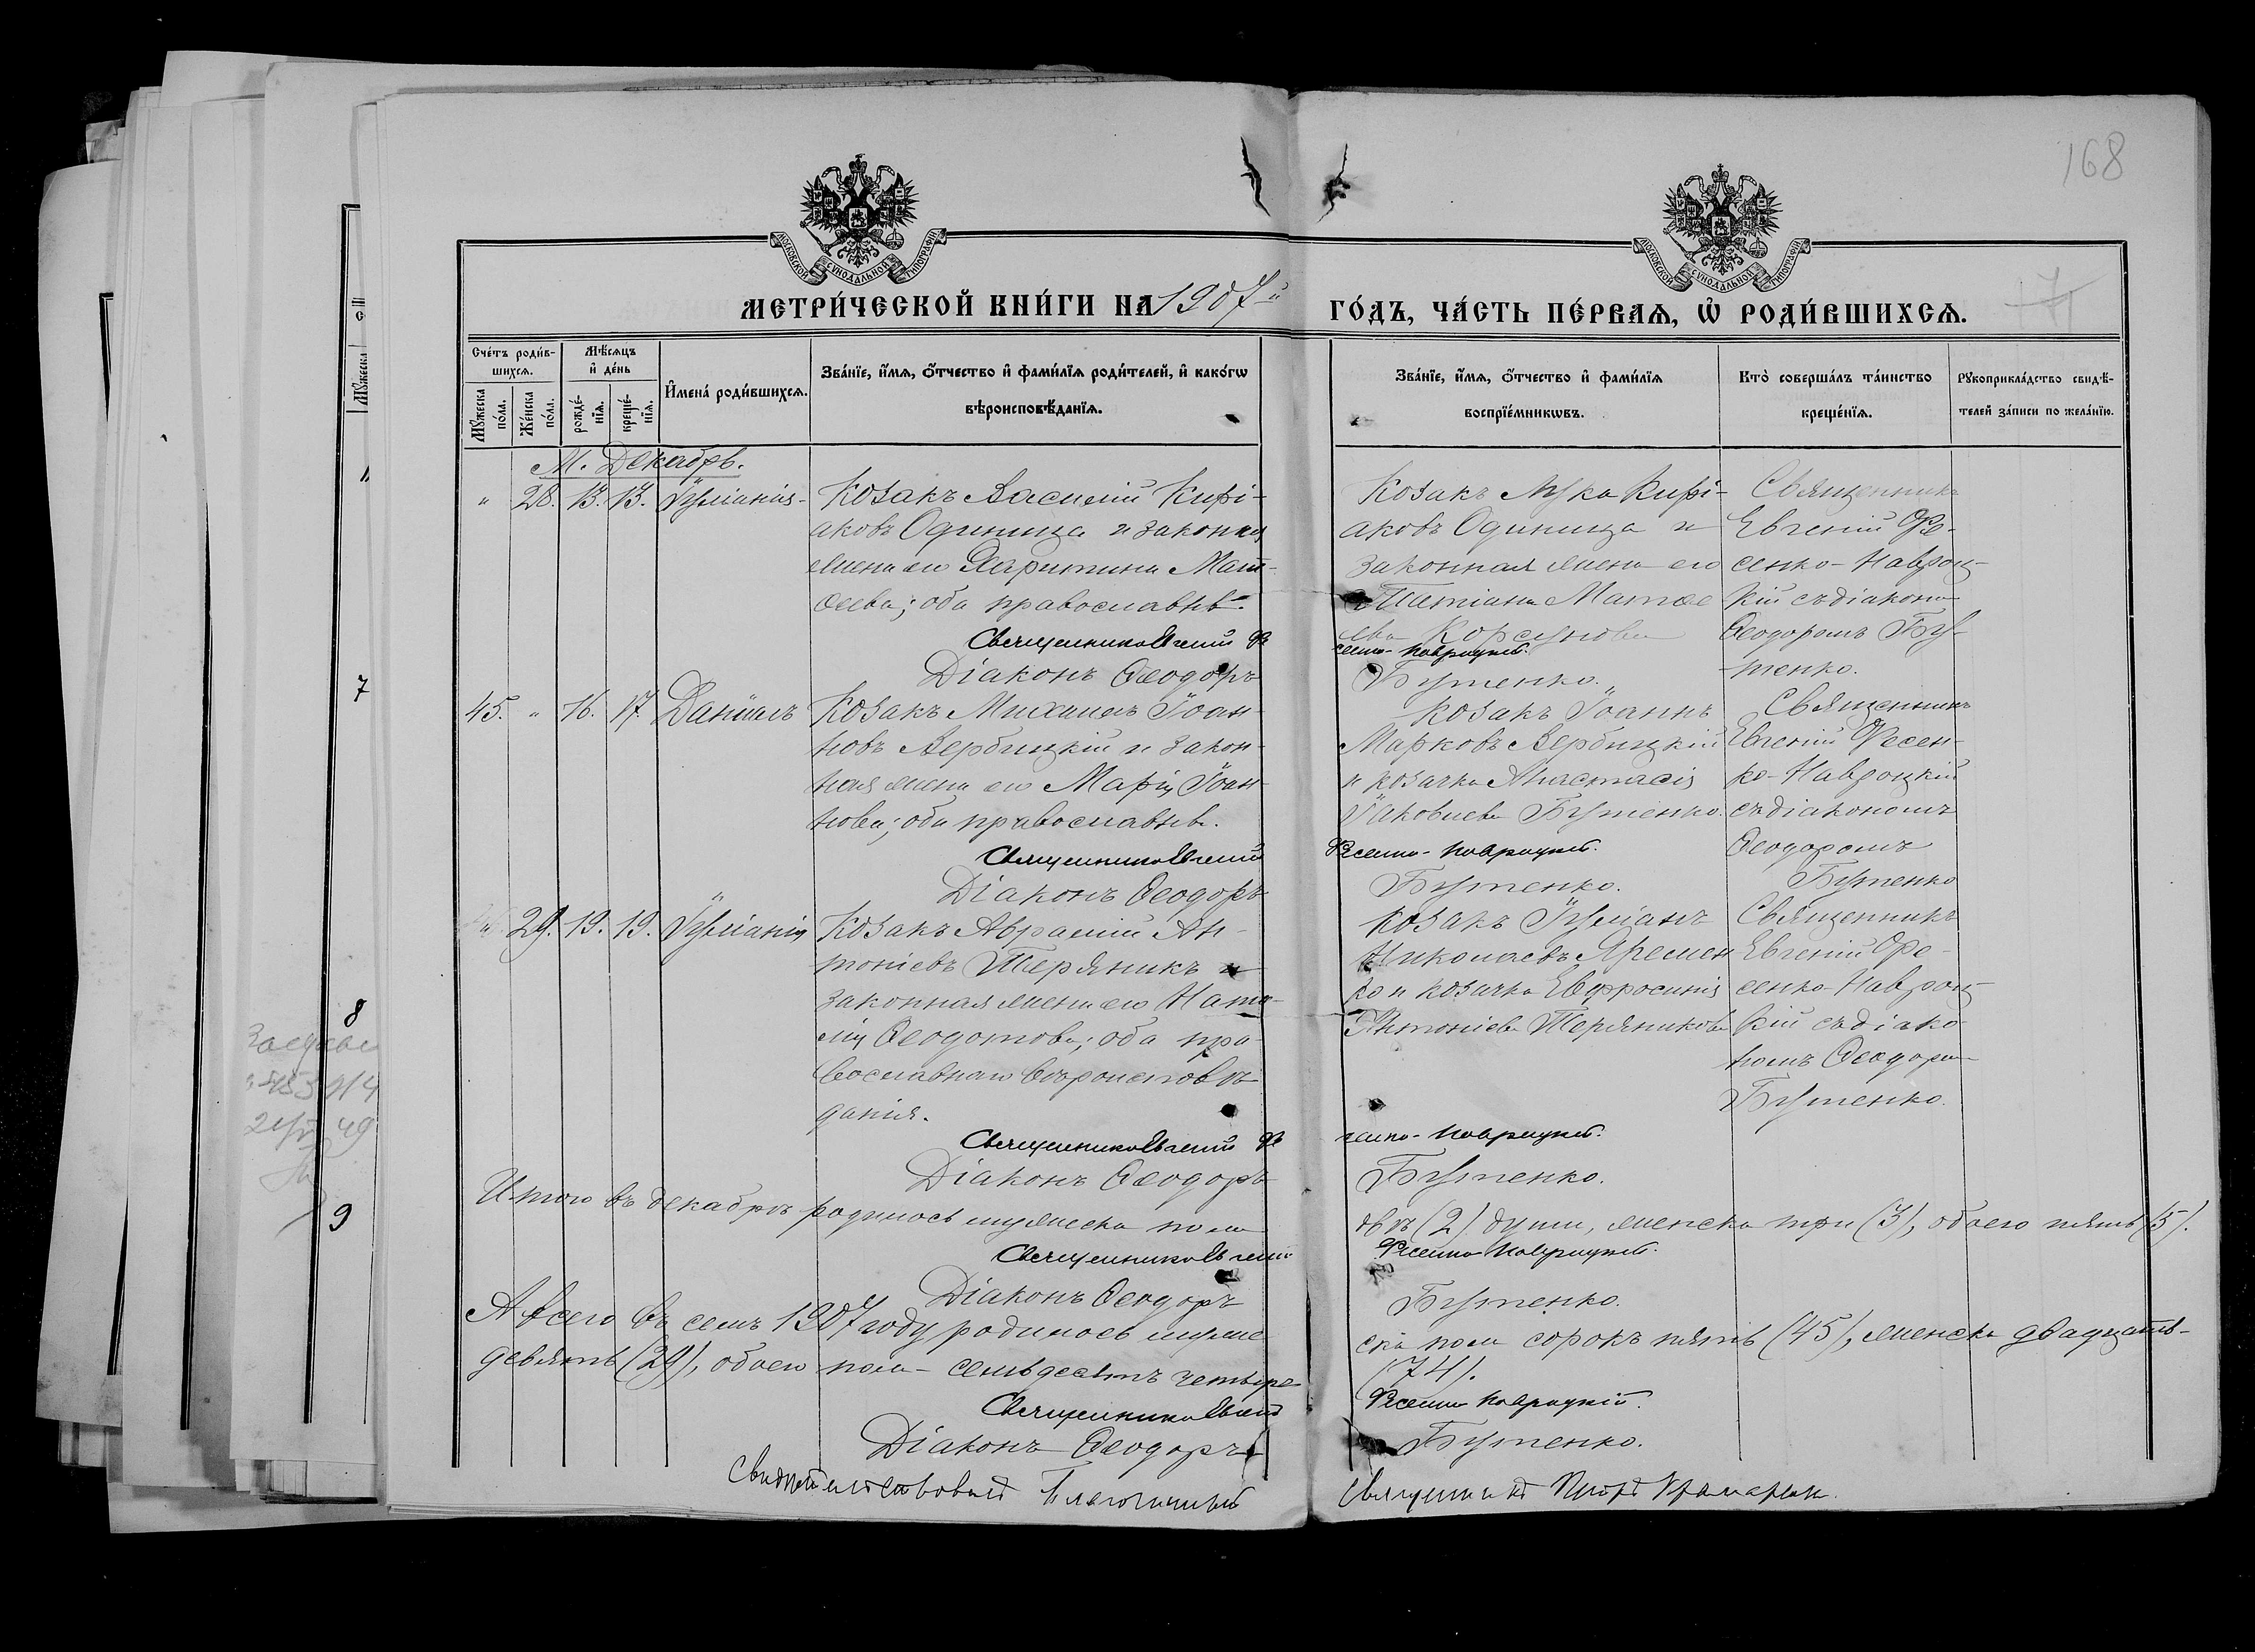 168
МОСКОВСКОЙ СѴНОДАЛЬНОЙ ТИПОГРАФІИ
МОСКОВСКОЙ СѴНОДАЛЬНОЙ ТИПОГРАФІИ
МЕТРИ́ЧЕСКОЙ КНИ́ГИ НА 1907й
ГО́ДЪ, ЧА́СТЬ ПЕ́РВАѦ, Ѡ҆ РОДИ́ВШИХСѦ.
Сче́тъ роди́в-
шихсѧ.
Мꙋ́жеска по́ла.
Же́нска по́ла.
Мѣ́сѧцъ
и҆ де́нь
рожде́-
нїѧ.
креще́-
нїѧ.
И҆мена̀ роди́вшихсѧ.
Зва́нїе, и҆́мѧ, ѻ҆́тчество и҆ фами́лїѧ роди́телей, и҆ како́гѡ
вѣроисповѣ́данїѧ.
Зва́нїе, и҆́мѧ, ѻ҆́тчество и҆ фами́лїѧ
воспрїе́мникѡвъ.
Кто̀ соверша́лъ та́инство
креще́нїѧ.
Рꙋкоприкла́дство свидѣ́-
телей за́писи по жела́нїю.
М. Декабрь.
" 28. 13. 13. Іуліанія
Козакъ Василій Кирі-
аковъ Одиница и законная
жена его Харитина Мат-
ѳеева; оба православные.
Священникъ Евгеній Фе
Діаконъ Ѳеодоръ
Козакъ Лука Кирі-
аковъ Одиница и
законная жена его
Татіана Матѳе
ева Корсунова
сенко-Навроцкій.
Бутенко.
Священникъ
Евгеній Фе-
сенко-Навроц-
кій съ діакономъ
Ѳеодоромъ Бу-
тенко.
45. " 16. 17. Даніилъ
Козакъ Михаилъ Іоан-
новъ Вербицкій и закон-
ная жена его Марія Іоан-
нова; оба православные.
Священникъ Евгеній
Діаконъ Ѳеодоръ
Козакъ Іоаннъ
Марковъ Вербицкій
и козачка Анастасія
Іаковлева Бутенко.
Фесенко-Навроцкій.
Бутенко.
Священникъ
Евгеній Фесен-
ко-Навроцкій
съ діакономъ
Ѳеодоромъ
Бутенко
29. 19. 19. Іуліанія
Козакъ Аврамій Ан-
тоніевъ Теряникъ и
законная жена его Ната-
лія Ѳеодотова; оба пра-
вославнаго вѣроисповѣ-
данія.
Священникъ Евгеній Фе
Діаконъ Ѳеодоръ
Козакъ Іуліанъ
Николаевъ Яремен
ко и козачка Евфросинія
Антоніева Теряникова
сенко-Навроцкій.
Бутенко.
Священникъ
Евгеній Фе-
сенко-Навроц-
кій съ діако-
номъ Ѳеодоромъ
Бутенко.
Итого въ декабрѣ родилось мужеска пола
двѣ (2) души, женска три (3), обоего пять (5).
Священникъ Евгеній
Фесенко-Навроцкій.
Діаконъ Ѳеодоръ
Бутенко.
А всего въ семъ 1907 году родилось муже-
ска пола сорокъ пять (45), женска двадцать-
девять (29), обоего пола - семьдесятъ четыре
(74).
Священникъ Евгеній
Фесенко-Навроцкій.
Діаконъ Ѳеодоръ
Бутенко.
Свидѣтельствовалъ Благочинный
Священникъ
7
8
9